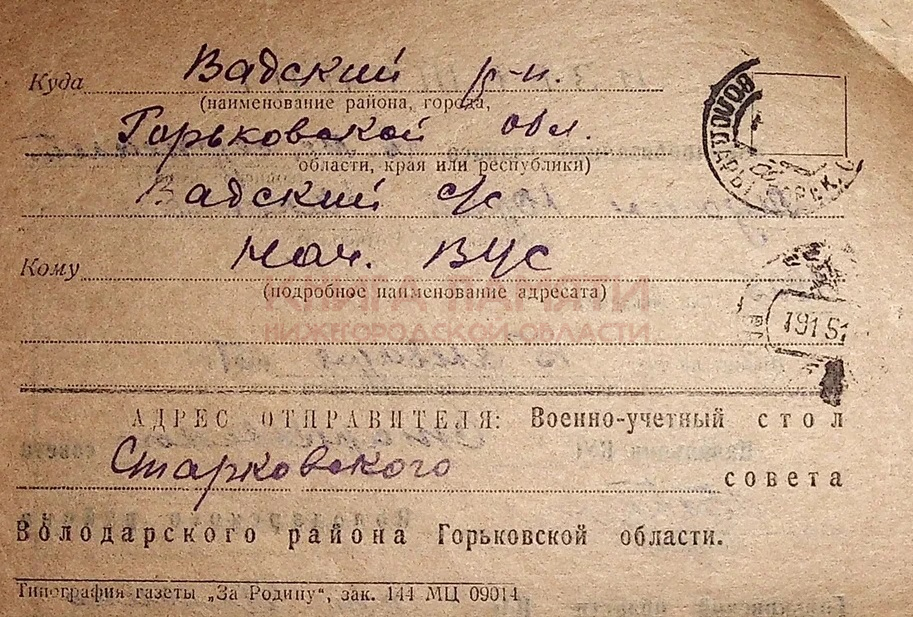 Куда Вадский р-н.
(наименование района, города,
Горьковской обл.
области, края или республики)
Вадский с/с
Кому Нач. ВУС
(подробное наименование адресата)
КНИГА ПАМЯТИ
НИЖЕГОРОДСКОЙ ОБЛАСТИ
19 1 51
АДРЕС ОТПРАВИТЕЛЯ: Военно-учетный стол
Старковского совета
Володарского района Горьковской области.
Типография газеты „За Родину“, зак. 144 МЦ 09014